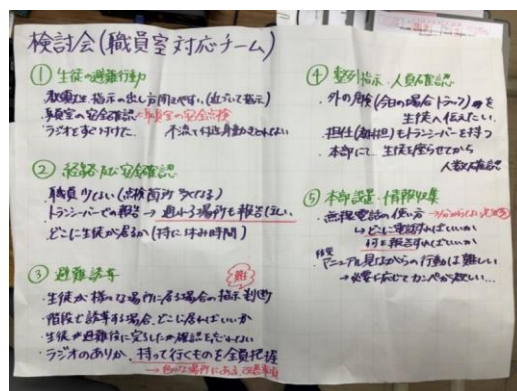 検討会(職員室対応チーム)
① 生徒の避難行動
・職員室の安全確認
・ラジオをすぐ付けた。
② 経路及び安全確認
・職員少ない(点検箇所多くなる)
・トランシーバーでの報告→通れる場所も報告ほしい
・どこに生徒が居るか(特に休み時間)
③ 避難誘導
・生徒が様々な場所に居る場合の指示判断
・階段で誘導する場合、どこに居ればいいか
・生徒が避難後に完了したか確認を忘れる
・ラジオのありか、持って行くものを全員把握
④ 整列指示・人員確認
・外の危険(今日の場合トラック)を
生徒へ伝えたい。
・担任(教科担)もトランシーバーを持つ
・本部にて、生徒を座らせてから
人数確認
⑤ 本部設置・情報収集
・無線電話の使い方
→どこに電話すればいいか
何を報告すればいいか
・マニュアル見ながらの行動は難しい
→必要に応じてカンペが欲しい…